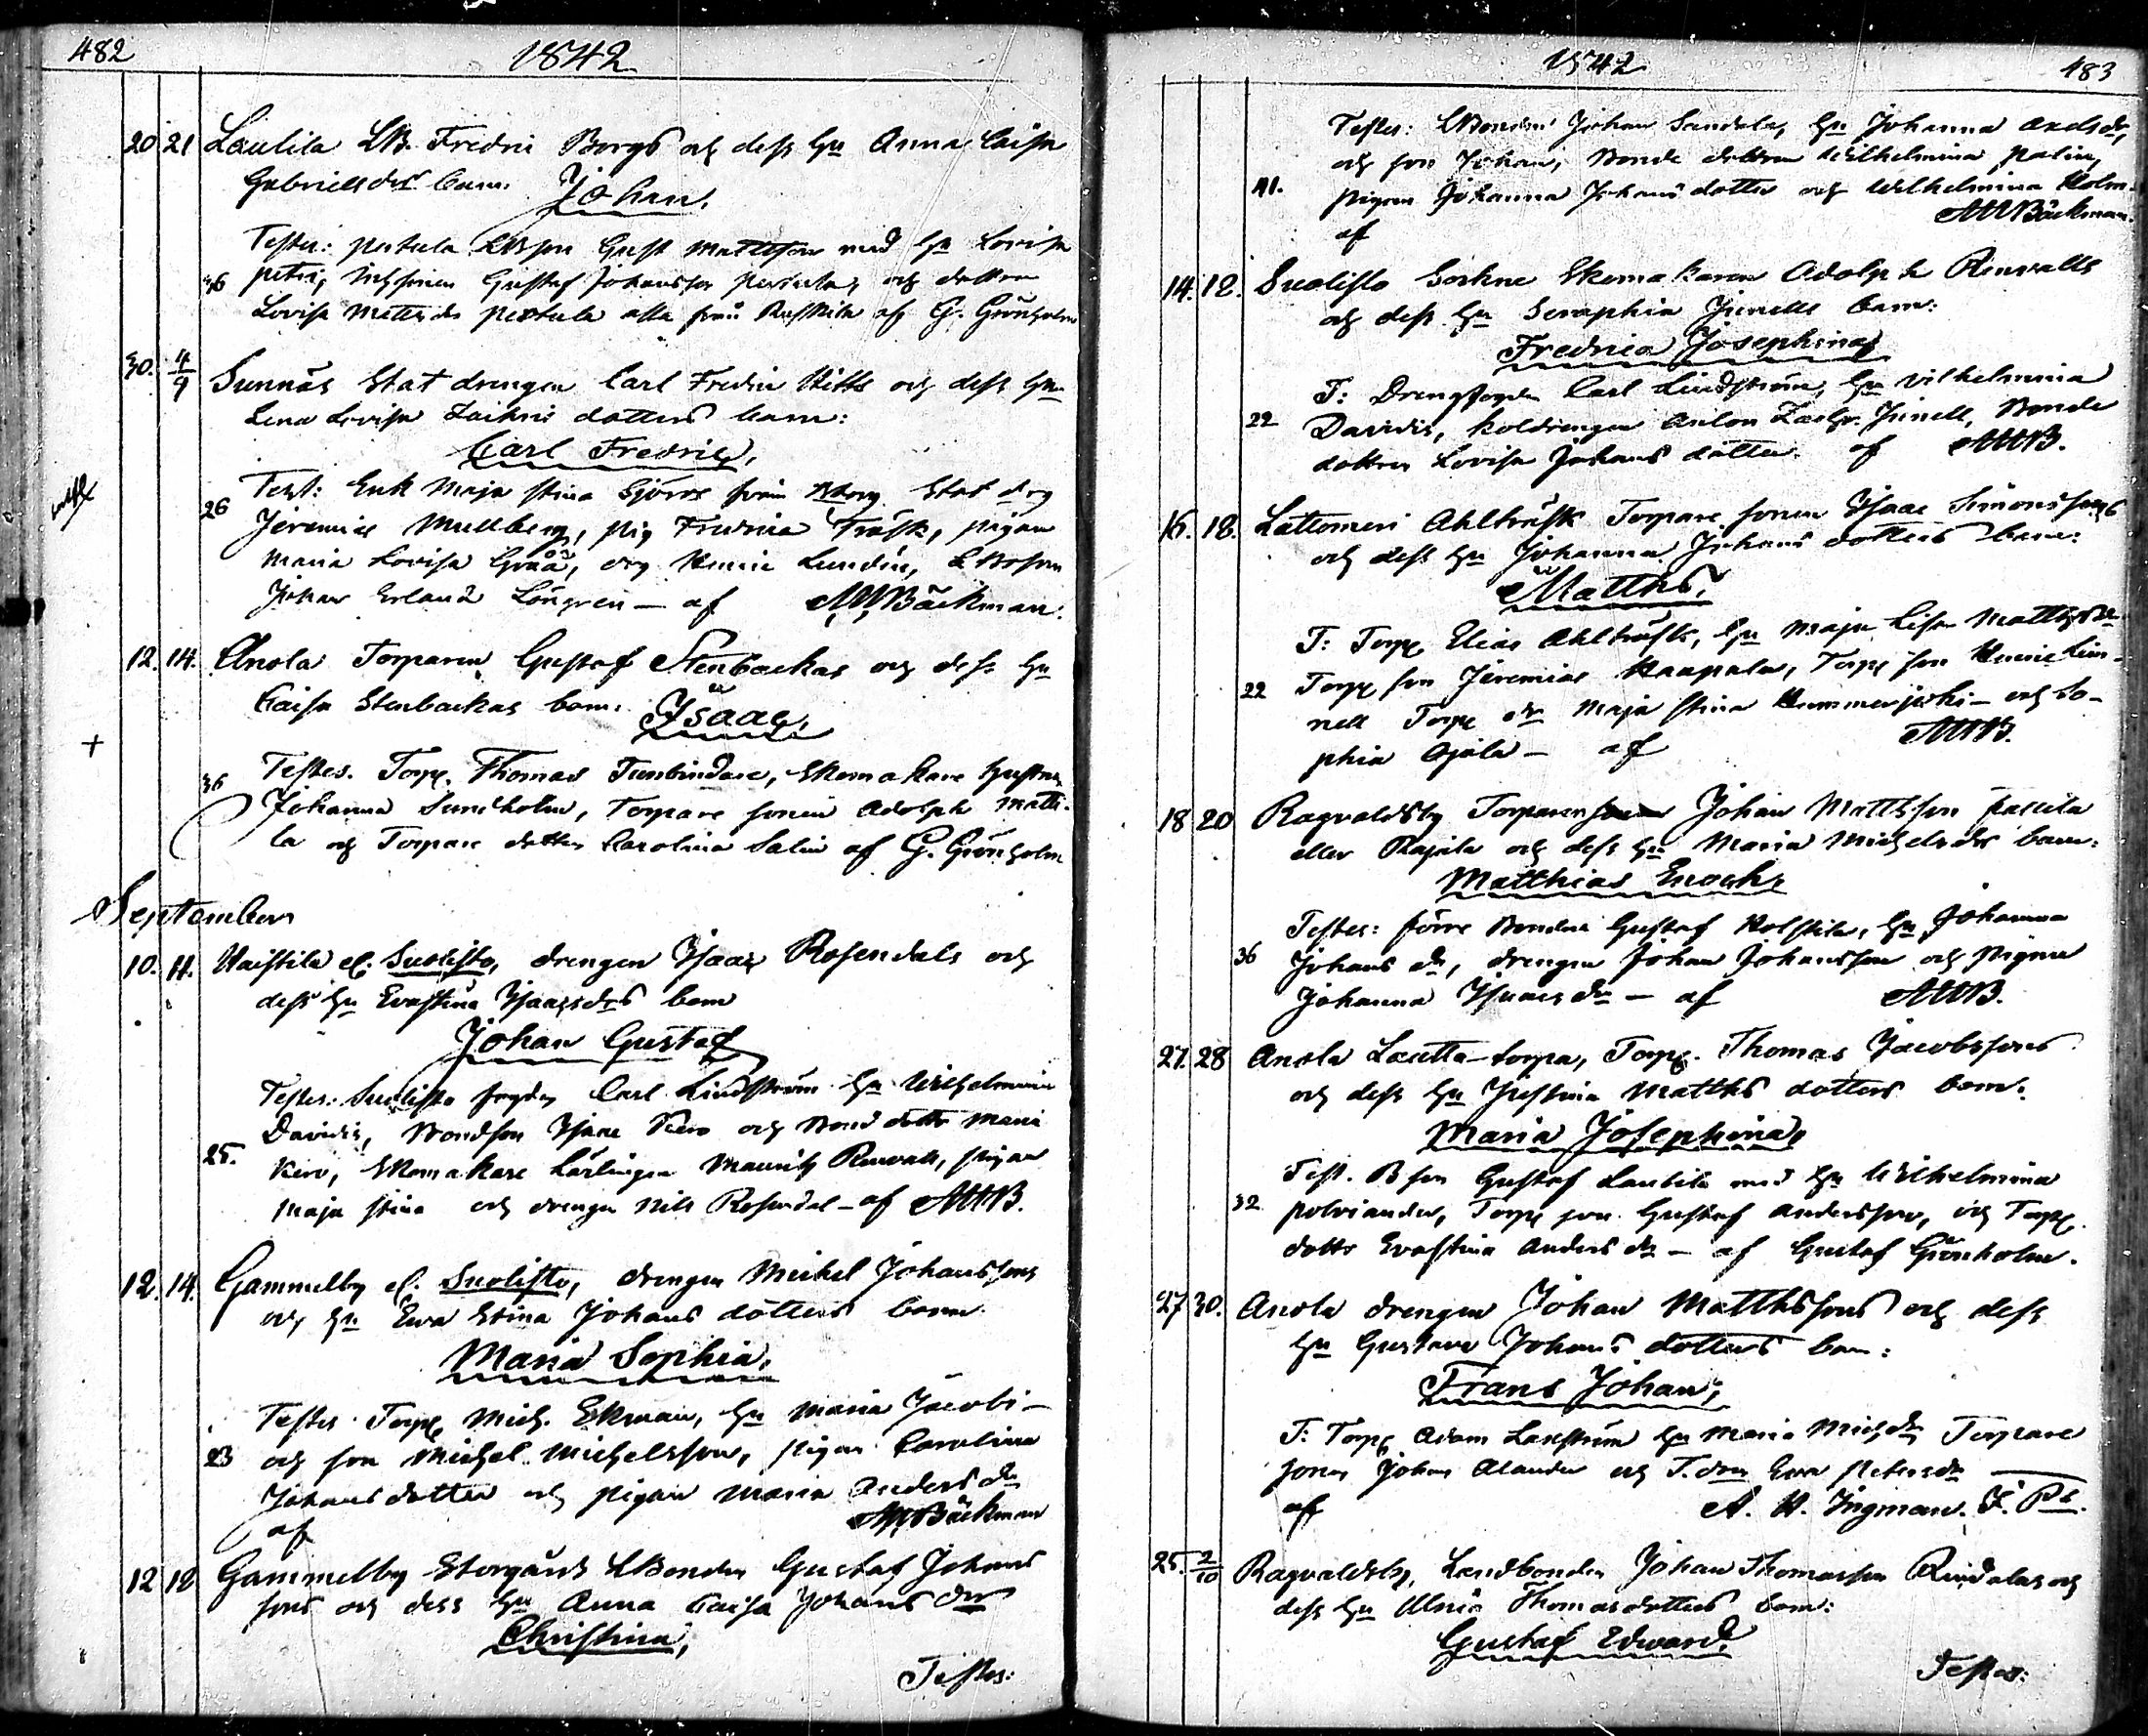 482 1842
20 21 Lautila LB. Fredric Borgs och dess hu Anna Caisa
Gabriels drs barn. Johan.
Testes: pertula LBson Gust Mattsson med hu Lovisa
36 petri, Gustaf Johansson pertula, och dottren
Lovisa Matts dr pertula alla från af G. Grönholm
30. 4/9 Sunnäs Stat drengen Carl Fredric och dess hu
Lena Lovisa dotters barn:
Carl Fredric,
Test: Enk Maja Stina Sjöros från Stat drg
26 Jeremias Mullberg, pig Fredrica Träsk, pigan
Maria Lovisa Gråå, drg Lundén, LBson
Johan Erland Löngren – af AWBäckman.
12. 14. Anola Torparen Gustaf Stenbackas och dess hu
Caisa Stenbackas barn. Isaac.
+
Testes. Torp. Thomas Tunbindare, Skomakare hustrun
36 Johanna Sundholm, Torpare sonen Adolph Matti-
la och Torpare dotter Carolina Salin af G. Grönholm
September
10. 11. Uaistila el. Suolisto, drengen Isaac Rosendals och
dess hu Evastina Isaacs drs barn
Johan Gustaf
Testes: Suolisto fogden Carl Lindström hu Wilhelmina
Davidis, Bondson Isaac Kero och Bond dottr Maria
25. Kero, Skomakare Lärlingen Mauritz Renvall, pigan
Maja Stina och drengen Nils Rosendal – af AWB.
12. 14. Gammelby el. Suolisto, drengen Michel Johanssons
och hu Ewa Stina Johans dotters barn
Maria Sophia.
Testes Torp. Mich. Ekman, hu Maria Jacobi –
23 och son Michel Michelsson, pigan Carolina
Johans dotter och pigan Maria Anders dr
af AWBäckman
12 18 Gammelby Storgårds LBonden Gustaf Johans
sons och dess hu Anna Caisa Johans drs
Christina,
Testes:
1842 483
Testes: LBonden Johan Sandala, hu Johanna Axelsdr,
och son Johan, Bonde dottren Wilhelmina palin,
41. pigan Johanna Johans dotter och Wilhelmina Holm.
af AWBäckman.
14. 18. Suolisto Sockne Skomakaren Adolph Renvalls
och dess hu Seraphia Junells barn:
Fredrica Josephina,
T: Drengfogden Carl Lindström, hu Vilhelmina
22 Davidis, Koldrengen Anton Junell, Bonde
dottren Lovisa Johans dotter. af AWB.
15. 18. Lattomeri Ahlträsk Torpare sonen Isaac Simonssons
och dess hu Johanna Johans dotters barn:
Matths.
T: Torp. Elias Ahlträsk, hu Maja Lisa Mattsdr
22 Torp. son Jeremias Haapala, Torp. son Lin-
nell Torp. dr Maja Stina Kummenjoki – och So-
phia Ojala – af AWB.
18 20 Ragvaldsby Torparen Johan Mattsson
eller Rajala och dess hu Maria Michels drs barn:
Matthias Enoch,
Testes: förre Bonden Gustaf Holstila, hu Johanna
36 Johans dr, drengen Johan Johansson och pigan
Johanna Isaacs dr – af AWB.
27. 28 Anola Lautta-torpa, Torp. Thomas Jacobssons
och dess hu Justina Matths dotters barn.
Maria Josephina,
Test. Bson Gustaf Lautila med hu Wilhelmina
32 polviander, Torp. son Gustaf Andersson, och Torp.
dottr Evastina Anders dr – af Gustaf Grönholm.
27 30. Anola drengen Johan Matthssons och dess
hu Gustava Johans dotters barn:
Frans Johan,
T: Torp. Adam Laxström hu Maria Michdr, Torpare
sonen Johan Alander och T. dren Ewa Petersdr
af A. H. Ingman. F. Ps.
25. 2/10 Ragvaldsby, Landbonden Johan Thomasson Rindalas och
dess hu Ulrica Thomasdotters barn:
Gustaf Edward.
Testes: